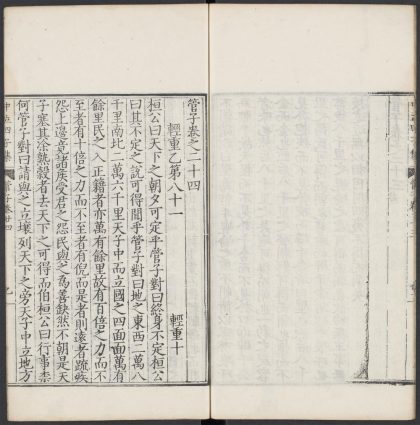 管子卷之二十四
輕重乙第八十一　輕重十
桓公曰天下之朝夕可定乎管子對曰終身不定桓公
曰其不定之說可得聞乎管子對曰地之東西二萬八
千里南北二萬六千里天子中而立國之四面面萬有
餘里民之入正籍者亦萬有餘里故有百倍之力而不
至者有十倍之力而不至者有倪而是者則遠者疏疾
怨上邊竟諸侯受君之怨民與之為善缺然不朝是天
子塞其涂熟穀者去天下之可得而伯桓公曰行事柰
何管子對曰請與之立壤列天下之旁天子中立地方
中立四子集　管子卷廿四